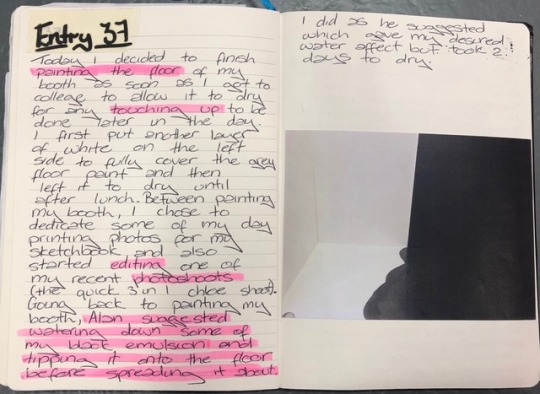 Entry 37
Today I decided to finish
painting the floor of my
booth as soon as I got to
college to allow it to dry
for any touching up to be
done later in the day.
I first put another layer
of white on the left
side to fully cover the grey
floor paint and then
left it to dry until
after lunch. Between painting
my booth, I chose to
dedicate some of my day
printing photos for my
sketchbook and also
started editing one of
my recent photoshoots
(the quick 3 in 1 chloe shoot).
Going back to painting my
booth, Alan suggested
watering down some of
my black emulsion and
tipping it onto the floor
before spreading it about.
I did as he suggested
which gave my desired
water effect but took 2
days to dry.